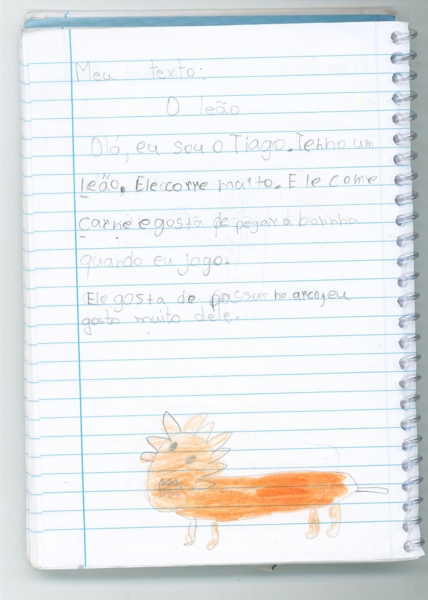 Meu texto:
O leão
Olá, eu sou o Tiago. Tenho um
leão. Ele corre muito. Ele come
carne e gosta de pegar a bolinha
quando eu jogo.
Ele gosta de passar no arco, eu
gosto muito dele.